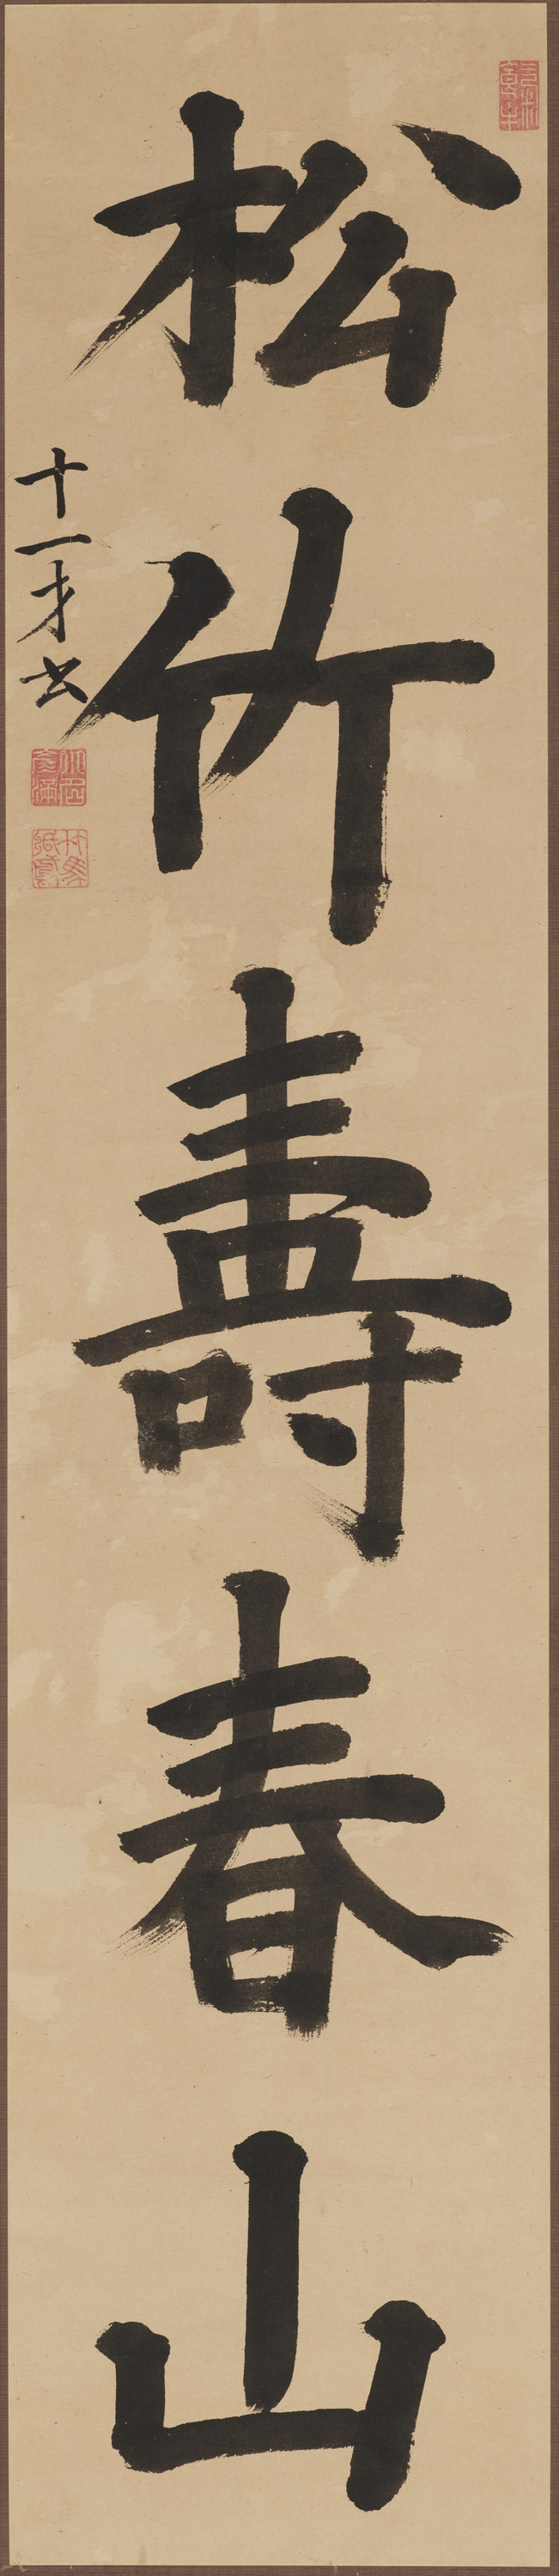 松竹壽春山
十一才書